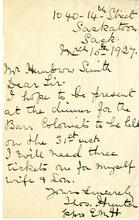 1040-14th Street
Saskatoon
Sask.
Mch 15th 1927.
Mr
Smith
Dear Sir.
I hope to be present
at the dinner for the
Barr Colonists to be held
on the 31st
I will need three
tickets on for myself
wife &
Yours Sincerely
Thos. Hunter
per E.M.H